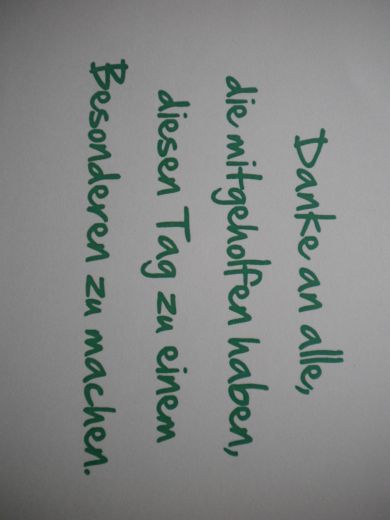 Danke an alle,
die mitgeholfen haben,
diesen Tag zu einem
Besonderen zu machen.